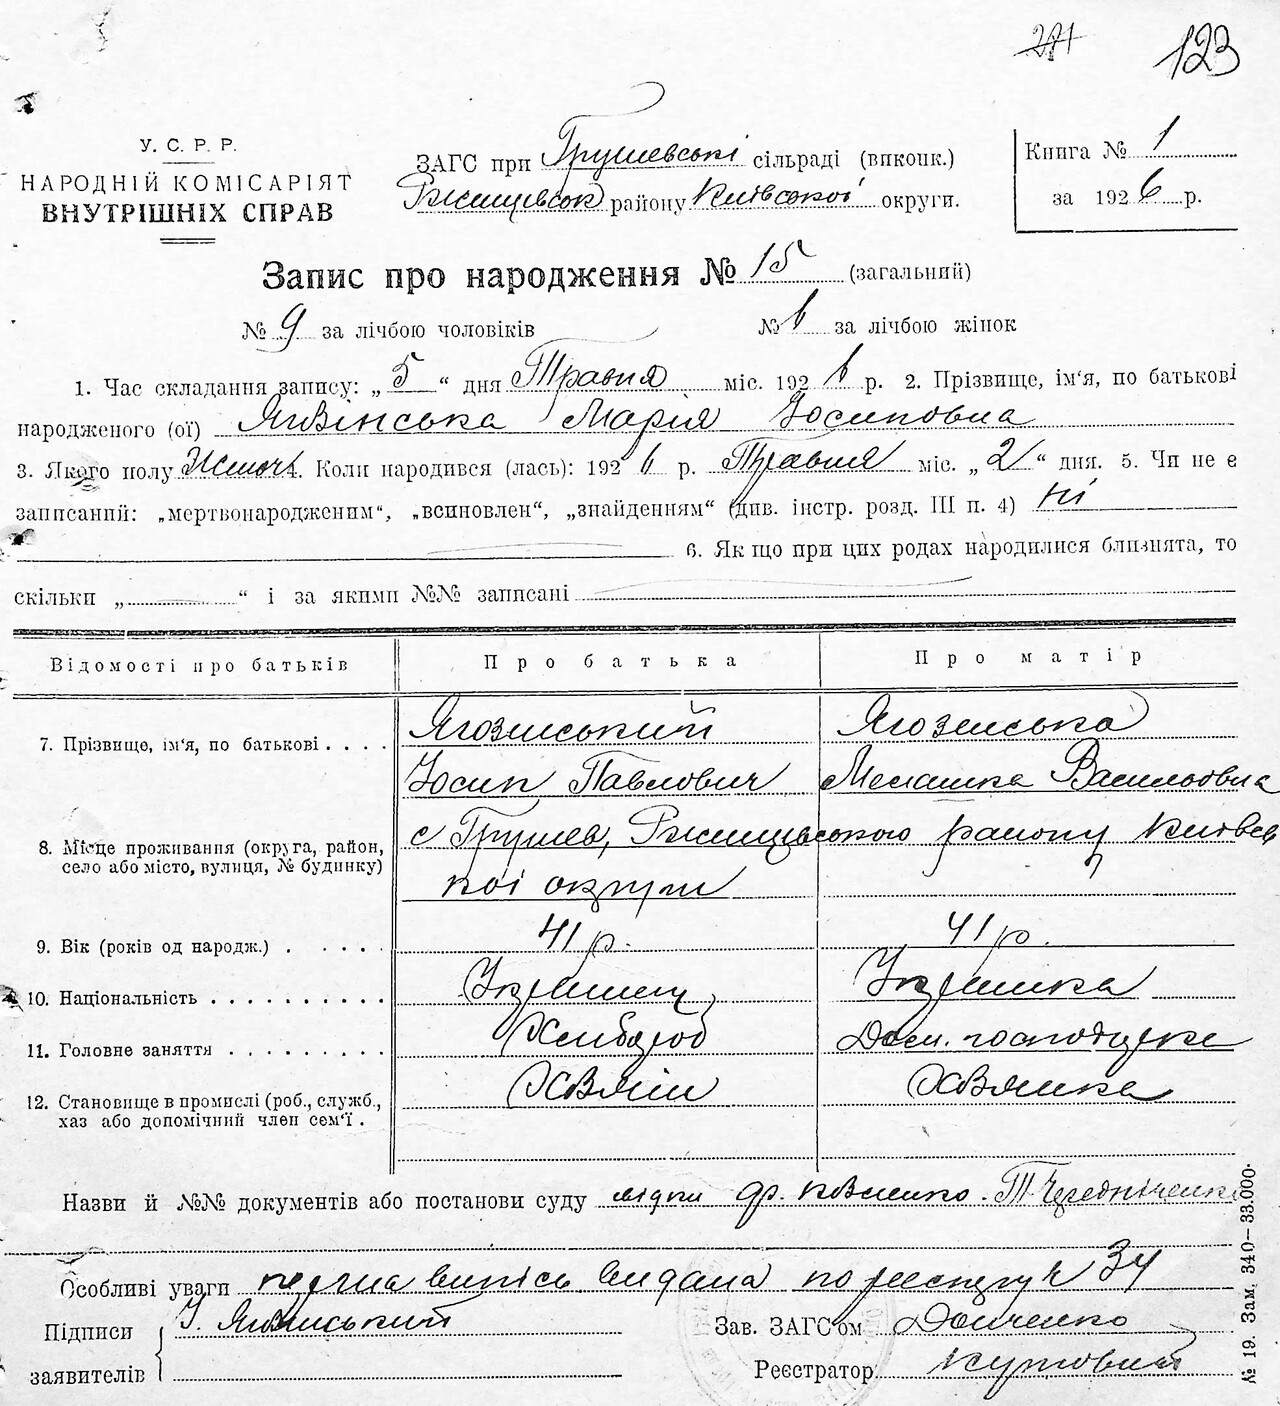 271 123
У. С. Р. Р.
НАРОДНІЙ КОМІСАРІЯТ
ВНУТРІШНІХ СПРАВ
ЗАГС при Грушевські сільраді (виконк.)
Ржищевськ району Київської округи.
Книга № 1
за 1926 р.
Запис про народження № 15 (загальний)
№ 9 за лічбою чоловіків № 6 за лічбою жінок
1. Час складання запису: „ 5 “ дня Травня міс. 1926 р. 2. Прізвище, ім‘я, по батькові
народженого (ої) Ягвінська Марія Йосиповна
3. Якого полу Жіноч. Коли народився (лась): 1926 р. Травня міс. „ 2 “ дня. 5. Чи не є
записаний: „мертвонародженим“, „всиновлен“, „знайденням“ (див. інстр. розд. III п. 4) ні
6. Як що при цих родах народилися близнята, то
скільки „ “ і за якими №№ записані
Відомості про батьків Про батька Про матір
7. Прізвище, ім‘я, по батькові . . . . Ягозинський Ягозенська
Йосип Павлович Мелашка Васильовна
8. Місце проживання (округа, район, село або місто, вулиця, № будинку) с Грушев, Ржищевського району Київсь
кої округи
9. Вік (років од народж.) . . . . . 41 р. 41 р.
10. Національність . . . . . . . . . . Українець Українка
11. Головне заняття . . . . . . . . . Хлібороб Дом. господарка
12. Становище в промислі (роб., служб., хаз або допомічний член сем‘ї . Хазяїн Хазяйка
Назви й №№ документів або постанови суду Т Чередніченко
Особливі уваги перша випісь видана по реєстру № 34
Підписи заявителів
Й. Ягвинський
Зав. ЗАГС‘ом Донченко
Реєстратор Кутовий
№ 19. Зам. 340—33.000.